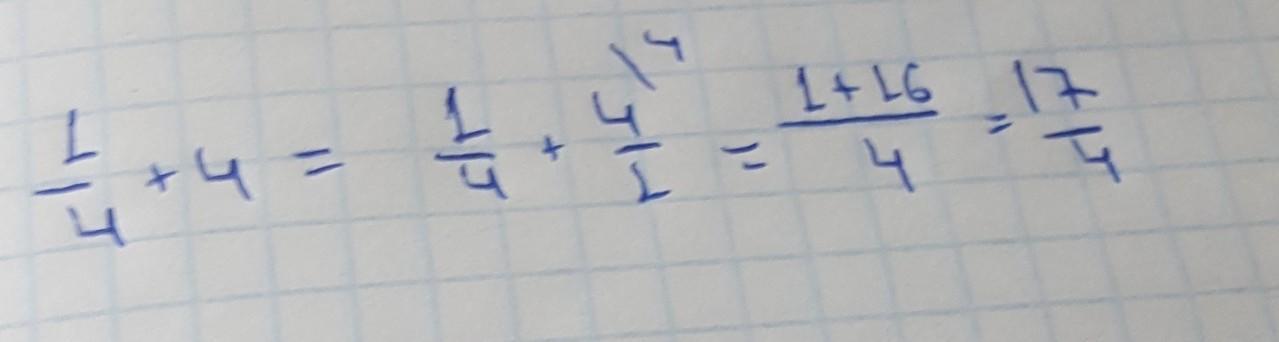 1/4 + 4 = 1/4 + 4\4/1 = 1+16/4 = 17/4